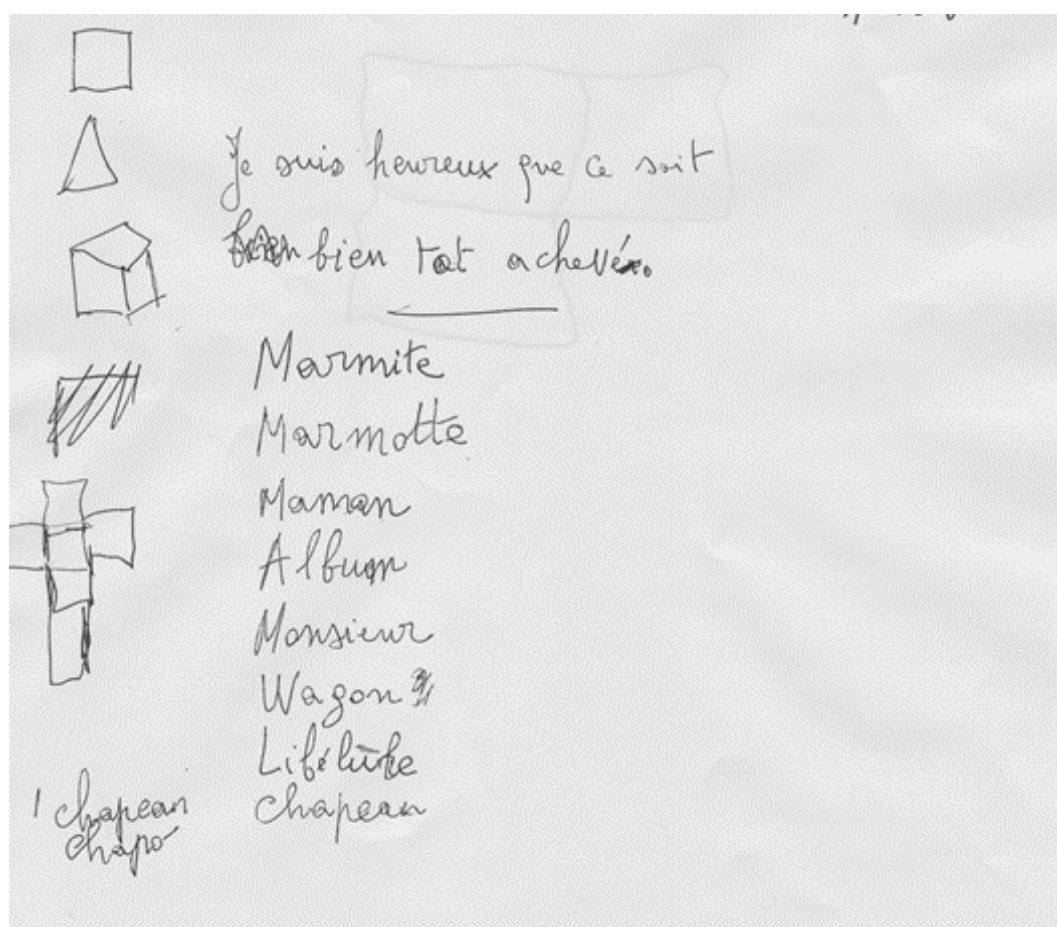 Je suis heureux que ce soit
bien tot achevé.
Marmite
Marmotte
Maman
Album
Monsieur
Wagon
chapeau
1 chapeau
chapo